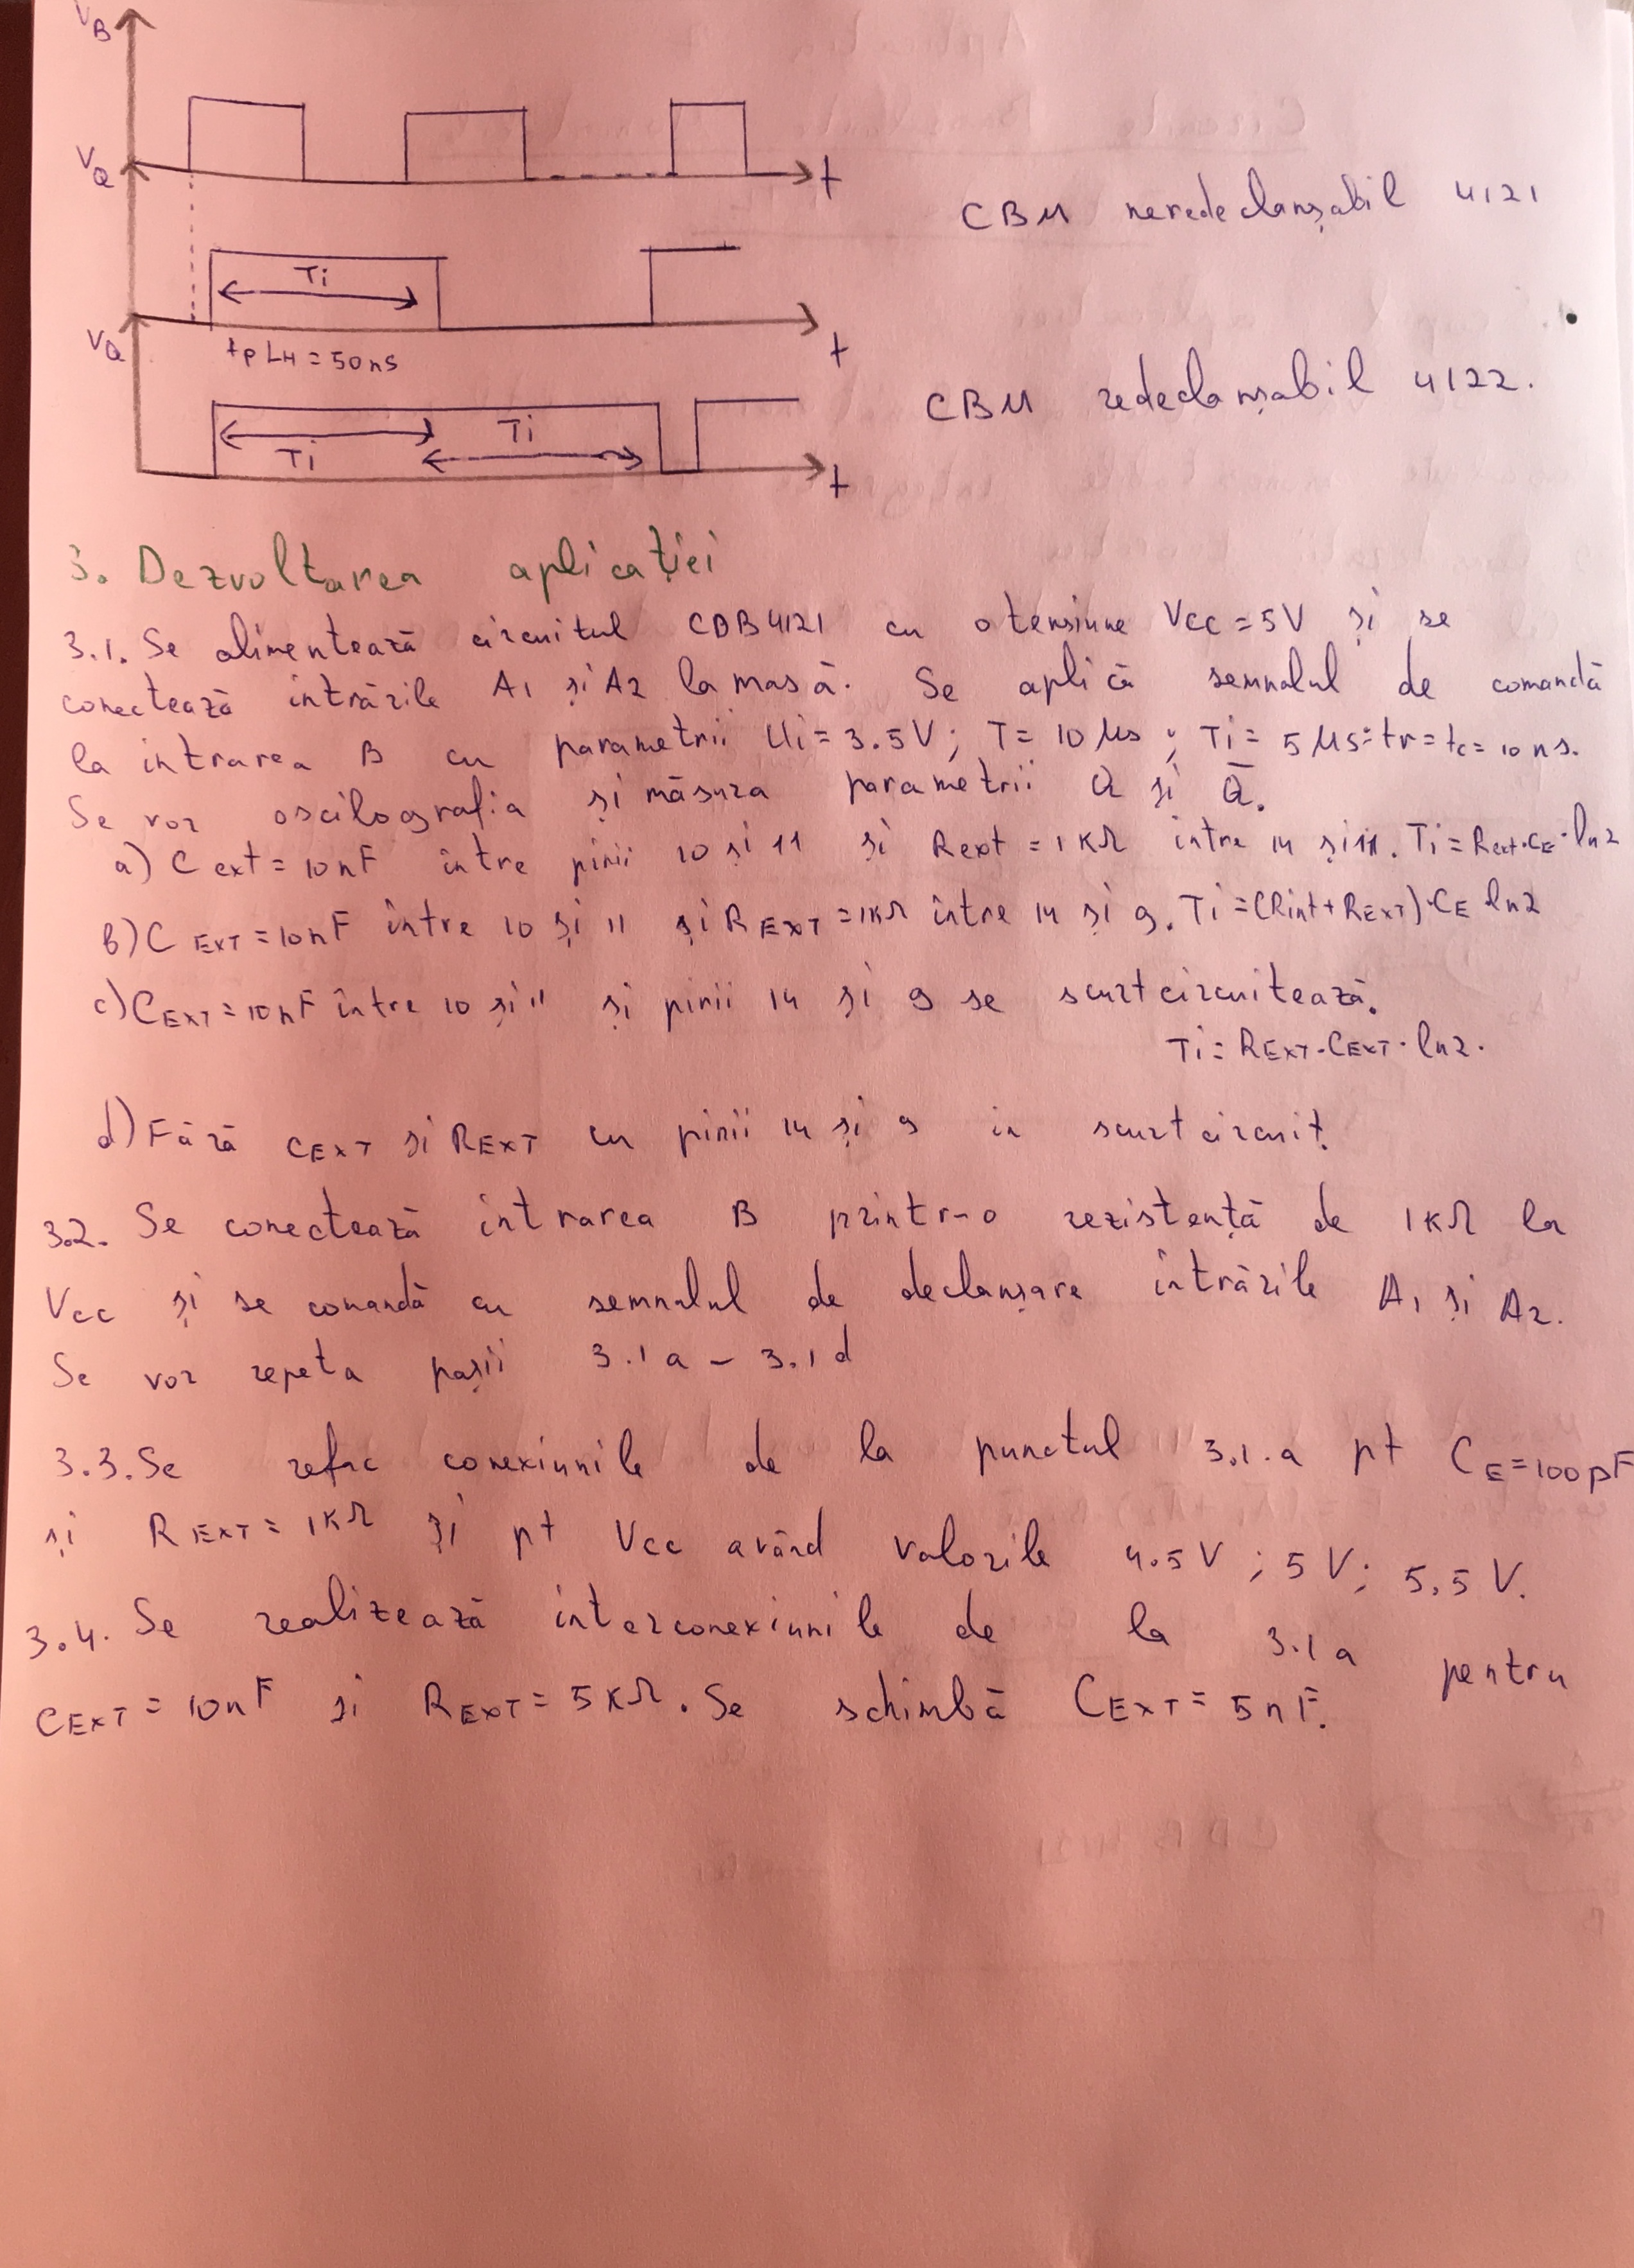 VB
VQ
t
CBM neredeclanșabil 4121
Ti
VQ
tpLH = 50ns
t
CBM redeclanșabil 4122.
Ti
Ti
t
3. Dezvoltarea aplicației
3.1. Se alimentează circuitul CDB4121 cu o tensiune VCC = 5V și se
conectează intrările A1 și A2 la masă. Se aplică semnalul de comandă
la intrarea B cu parametrii Ui = 3.5V; T = 10 μs; Ti = 5 μs = tr = tc = 10 ns.
Se vor oscilografia și măsura parametrii Q și Q̄.
a) Cext = 10nF între pinii 10 și 11 și Rext = 1KΩ între 14 și 11. Ti = Rext·CE·ln2
b) CEXT = 10nF între 10 și 11 și REXT = 1KΩ între 14 și 9. Ti = (Rint + REXT)·CE ln2
c) CEXT = 10nF între 10 și 11 și pinii 14 și 9 se scurtcircuitează.
Ti = REXT·CEXT·ln2.
d) Fără CEXT și REXT cu pinii 14 și 9 in scurtcircuit.
3.2. Se conectează intrarea B printr-o rezistență de 1KΩ la
Vcc și se comandă cu semnalul de declanșare intrările A1 și A2.
Se vor repeta pașii 3.1a - 3.1d
3.3. Se refac conexiunile de la punctul 3.1.a pt CE = 100pF
și REXT = 1KΩ și pt Vcc având valorile 4.5V; 5V; 5.5V.
3.4. Se realizează interconexiunile de la 3.1a pentru
CEXT = 10nF și REXT = 5KΩ. Se schimbă CEXT = 5nF.